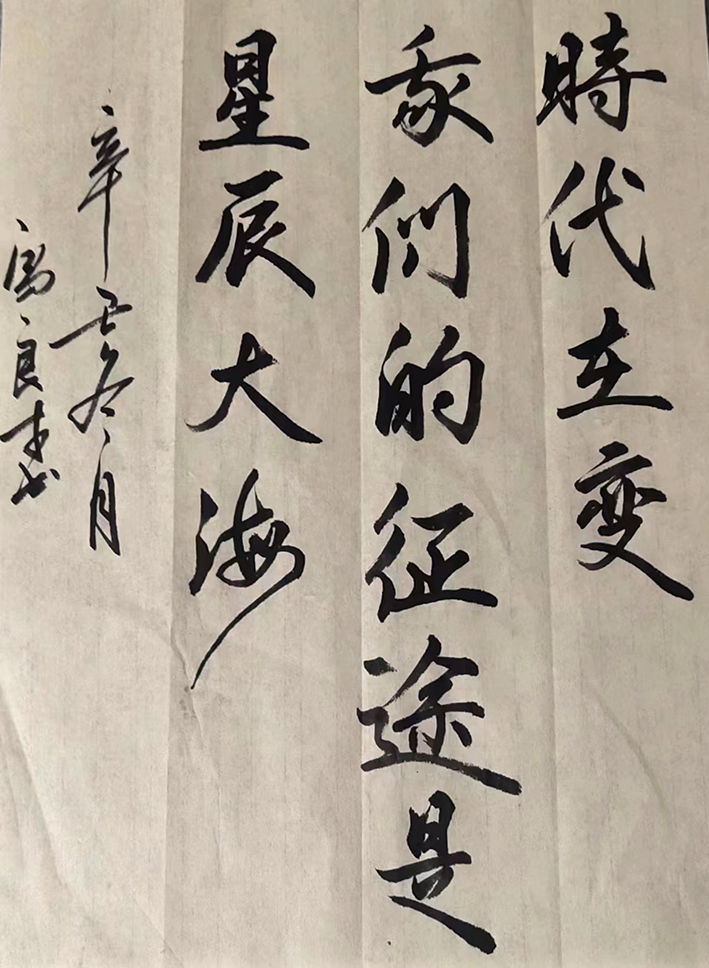 時代在变
我们的征途是
星辰大海
辛丑冬月
良書